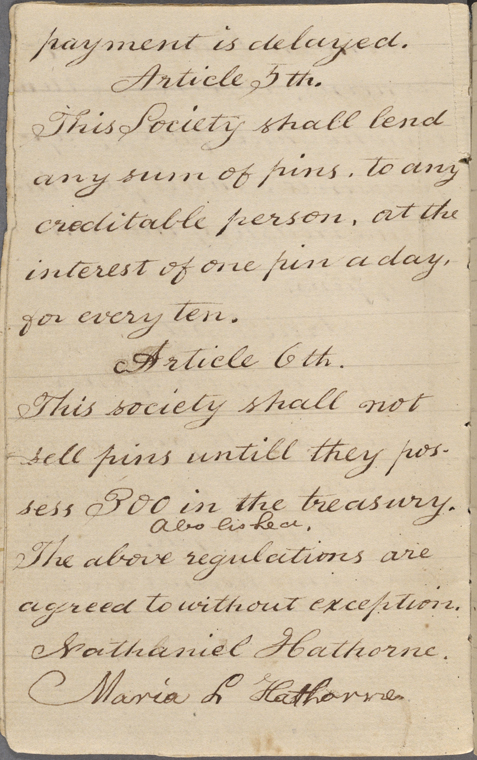 payment is delayed.
Article 5th.
This Society shall lend
any sum of pins, to any
creditable person, at the
interest of one pin a day,
for every ten.
Article 6th.
This society shall not
sell pins untill they pos-
sess 300 in the treasury.
Abolished.
The above regulations are
agreed to without exception.
Nathaniel Hathorne.
Maria L Hathorne